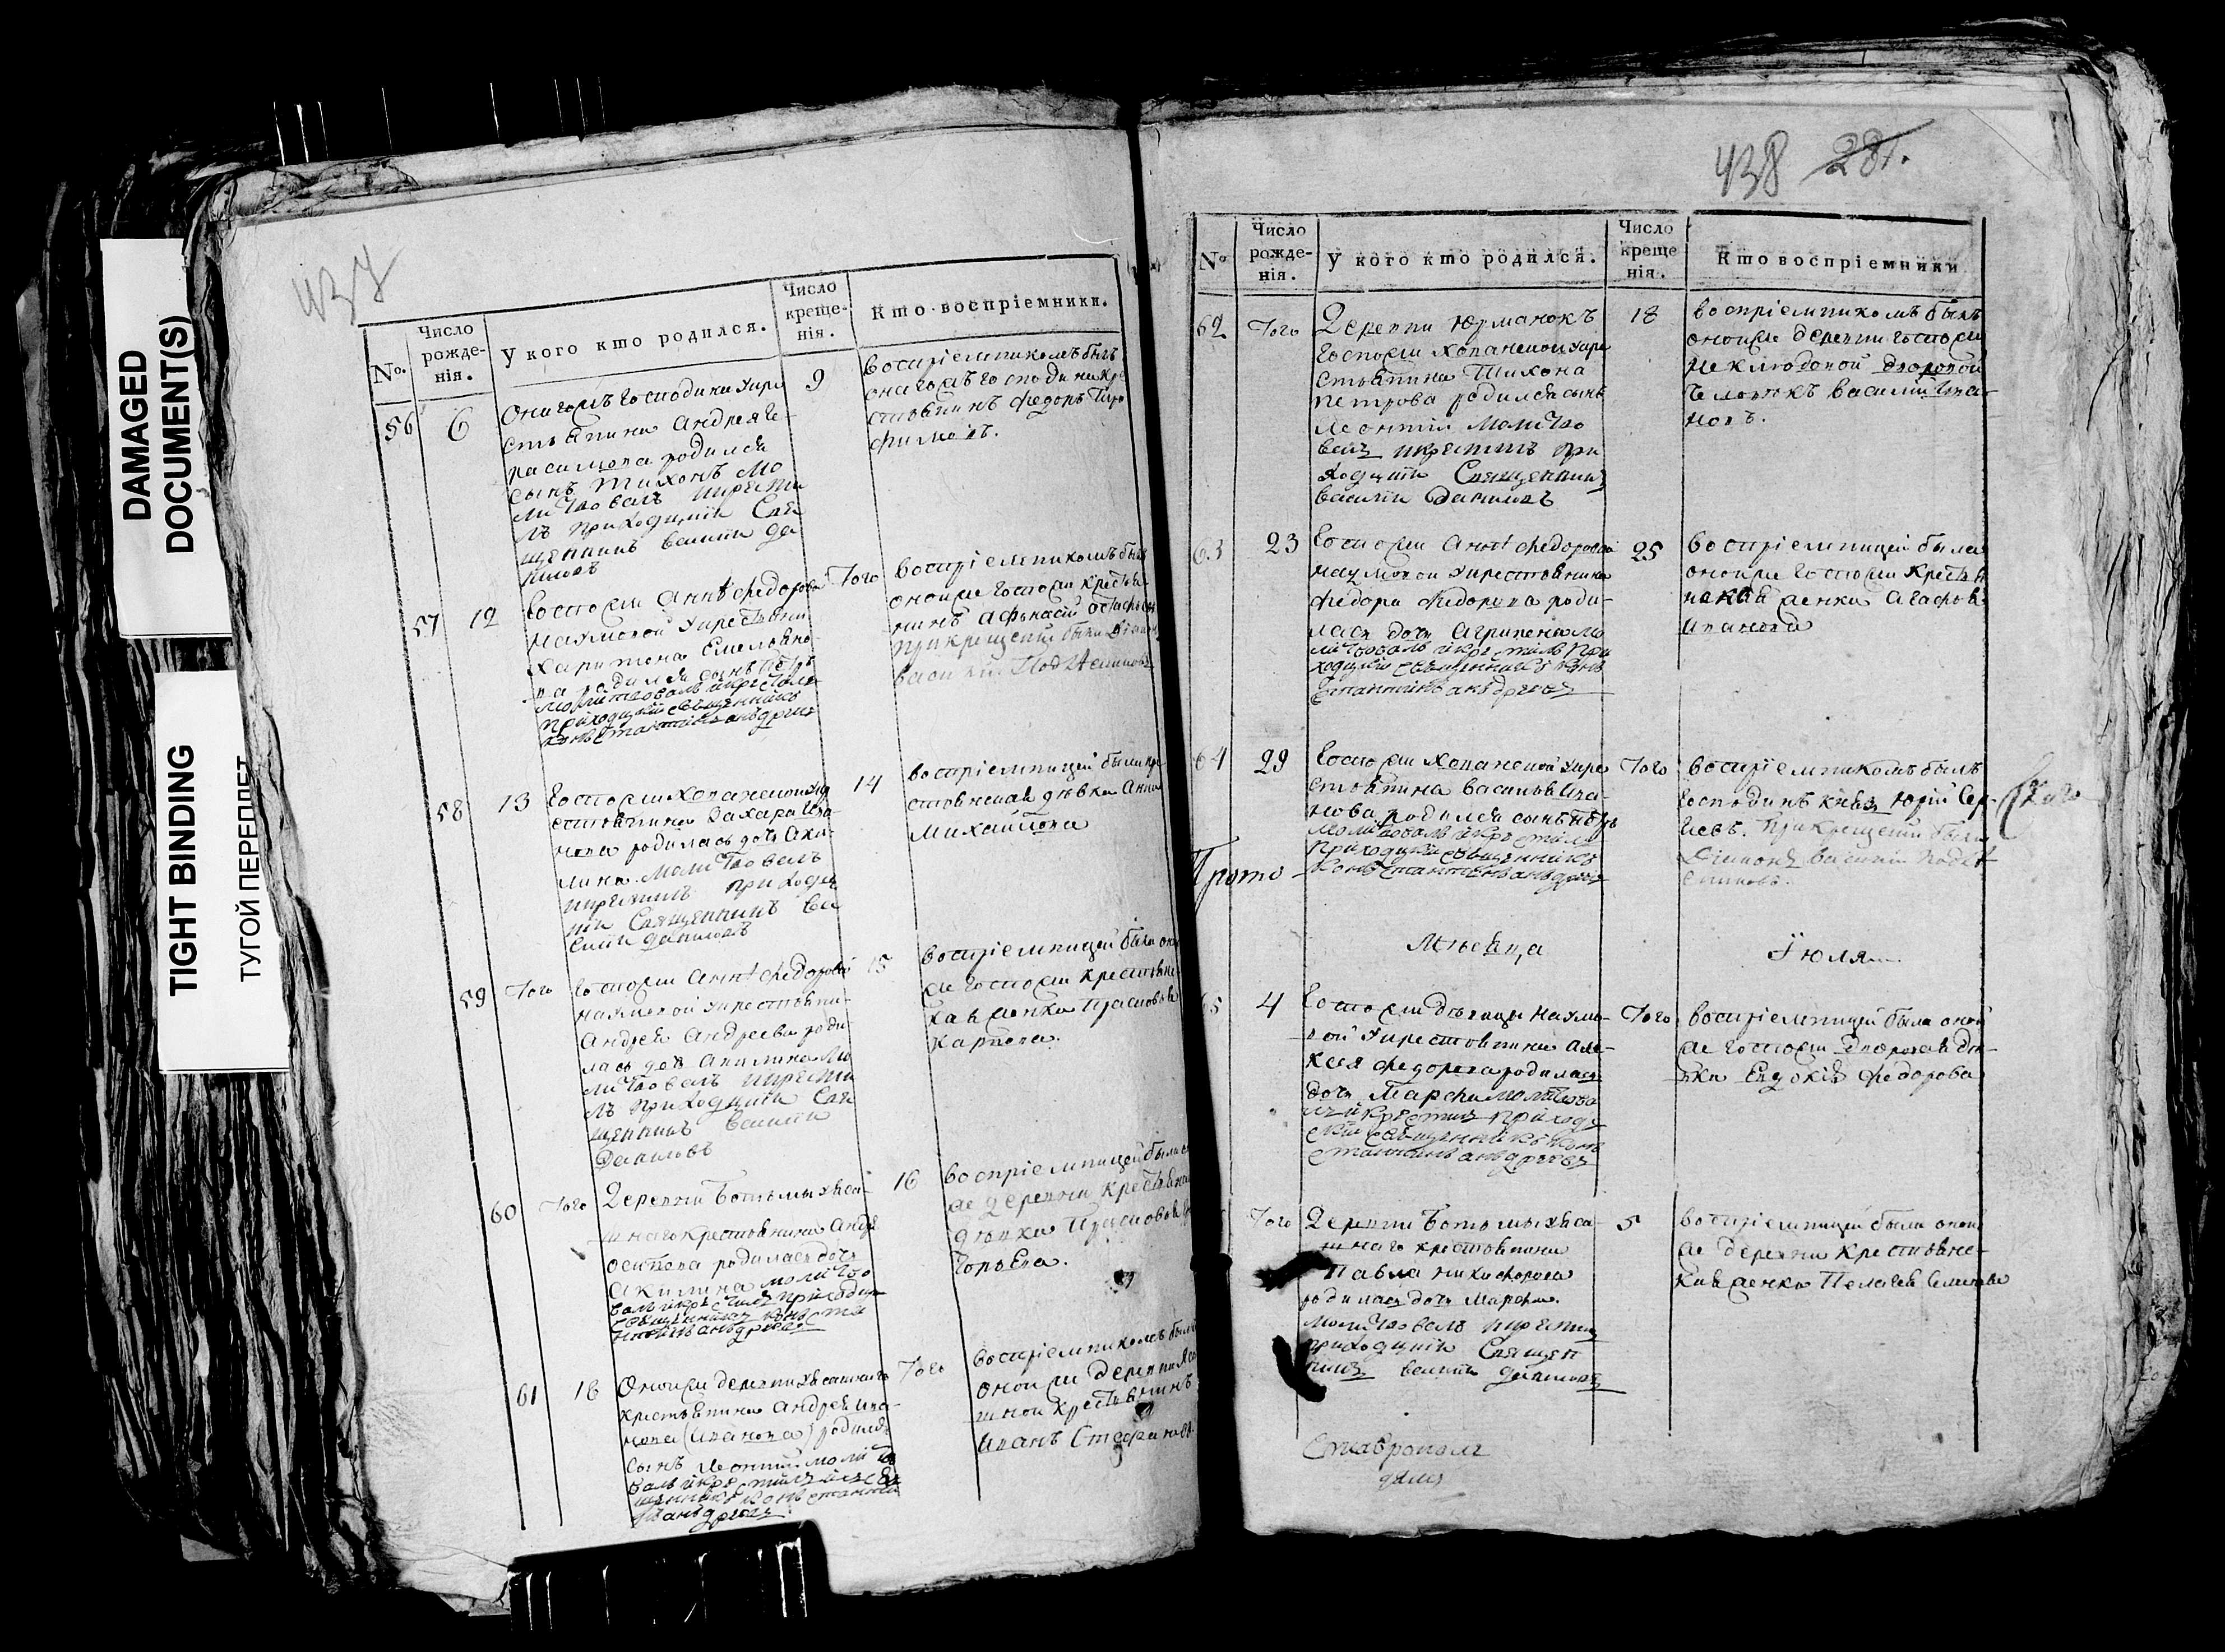 DAMAGED
DOCUMENT(S)
TIGHT BINDING
ТУГОЙ ПЕРЕПЛЕТ
437
№.
Число
рожде-
нія.
У кого кто родился.
Число
креще-
нія.
Кто воспріемники.
56
6
Онагожъ Господина кре
стьянина Андрея Ге-
расимова родился
сынъ Тихонъ мо
литвовалъ и крести
лъ приходцкій Свя
щенникъ Василій Да
ниловъ
9
воспріемникомъ былъ
онагожъ господина кре
стьянинъ Федоръ
57
12
Госпожи Анны Федоровой
Наумовой крестьяни
Харитона Емельяно
ва родился сынъ Петръ
молитвовалъ и крестилъ
приходцкій священникъ
Констант андреевъ
Того
воспріемникомъ былъ
оной же Госпожи крестья
нинъ Афанасій
при крещеніи были
58
13
Госпожи Хованской кре
стьянина Захара Ива
нова родилась дочь Аки-
лина молитвовалъ
и крестилъ приходц
кій Священникъ Ва
силій Даниловъ
14
воспріемницей была кре
стьянская дѣвка Анна
Михайлова
59
Того
Госпожи Анны Федоровой
Наумовой крестьяни-
Андрея Андреева роди
лась дочь Акилина мо
литвовалъ и крести
лъ приходцкій Свя
щенникъ Василій
Даниловъ
15
воспріемницей была оной
же Госпожи крестьянс
кая женка Прасковья
Карпова.
60
Того
Деревни Ботьмы ясa-
шнаго крестьянина Андр
Осипова родилась дочь
Акилина молитво
валъ и крестилъ приходцк
священникъ Конста
нтинъ андреевъ
16
воспріемницей была он
же деревни крестьянс
дѣвка Прасковья
горьева.
61
16
Оной же деревни ясашнаго
крестьянина Андрея Ива-
нова (Иванова) родился
сынъ Леонтій молитво
валъ и крестилъ свя
щенникъ Константи
нъ андреевъ.
Того
воспріемникомъ былъ
оной же деревни яса
шной крестьянинъ
Иванъ Стефановъ.
438 281.
№
Число
рожде-
нія.
У кого кто родился.
Число
креще
нія.
Кто воспріемники
62
Того
Деревни Юрманокъ
Госпожи Хованской кре
стьянина Тихона
Петрова родился сынъ
Леонтій молитво
валъ и крестилъ при
ходцкій Священникъ
Василій Даниловъ
18
воспріемникомъ былъ
оной же деревни госпожи
Неклюдовой дворовой
человекъ Василій Ива-
новъ.
63
23
Госпожи Анны Федоровой
Наумовой крестьянина
Федора Федорова роди-
лась дочь Агрипена мо
литвовалъ и крестилъ при
ходцкій священникъ Конс
стантинъ андреевъ
25
воспріемницей была
оной же Госпожи крестья
нская женка Агафья
Иванова
64
29
Госпожи Хованской кре
стьянина Василья Ива-
нова родился сынъ Петръ
молитвовалъ и крестилъ
приходцкій священникъ
Константинъ андреевъ
Того
воспріемникомъ былъ
Господинъ князь Юрій Сер-
геевъ. При крещеніи были
Діаконъ Василій
Прото
Мѣсяца Іюля
65
4
Госпожи дѣвицы Наумо-
вой крестьянина Але-
ксея Федорова родилась
дочь Марфа молитвова
лъ и крестилъ приход
скій священникъ Конс
стантинъ андреевъ
Того
воспріемницей была оной
же госпожи дворовая дѣ-
вка Евдокія Федорова
Того
Деревни Ботьмы яса-
шнаго крестьянина
Павла Никифорова
родилась дочь Марфа.
молитвовалъ и крестилъ
приходцкій Священ
никъ Василій Даниловъ
5
воспріемницей была оной
же деревни крестьянс-
кая женка Пелагея
Ставропол